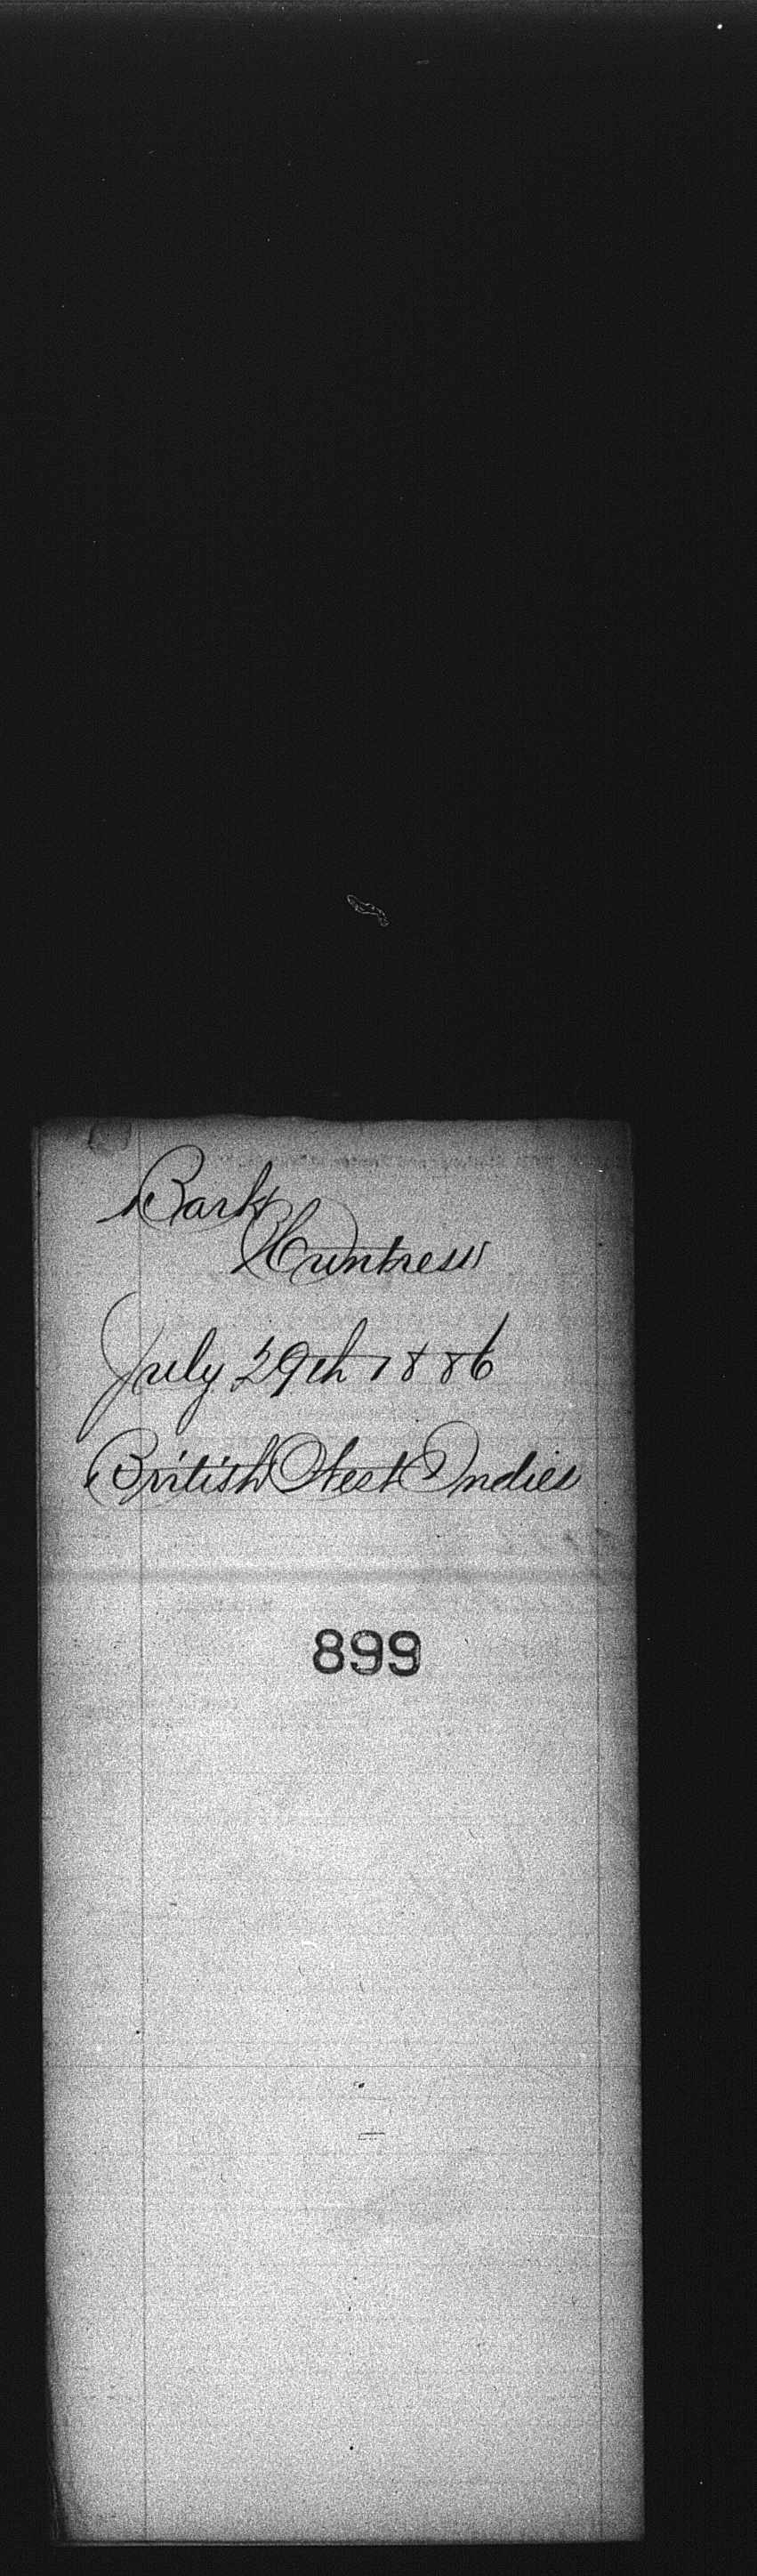 Bark
Huntress
July 29th 1886
British West Indies
899